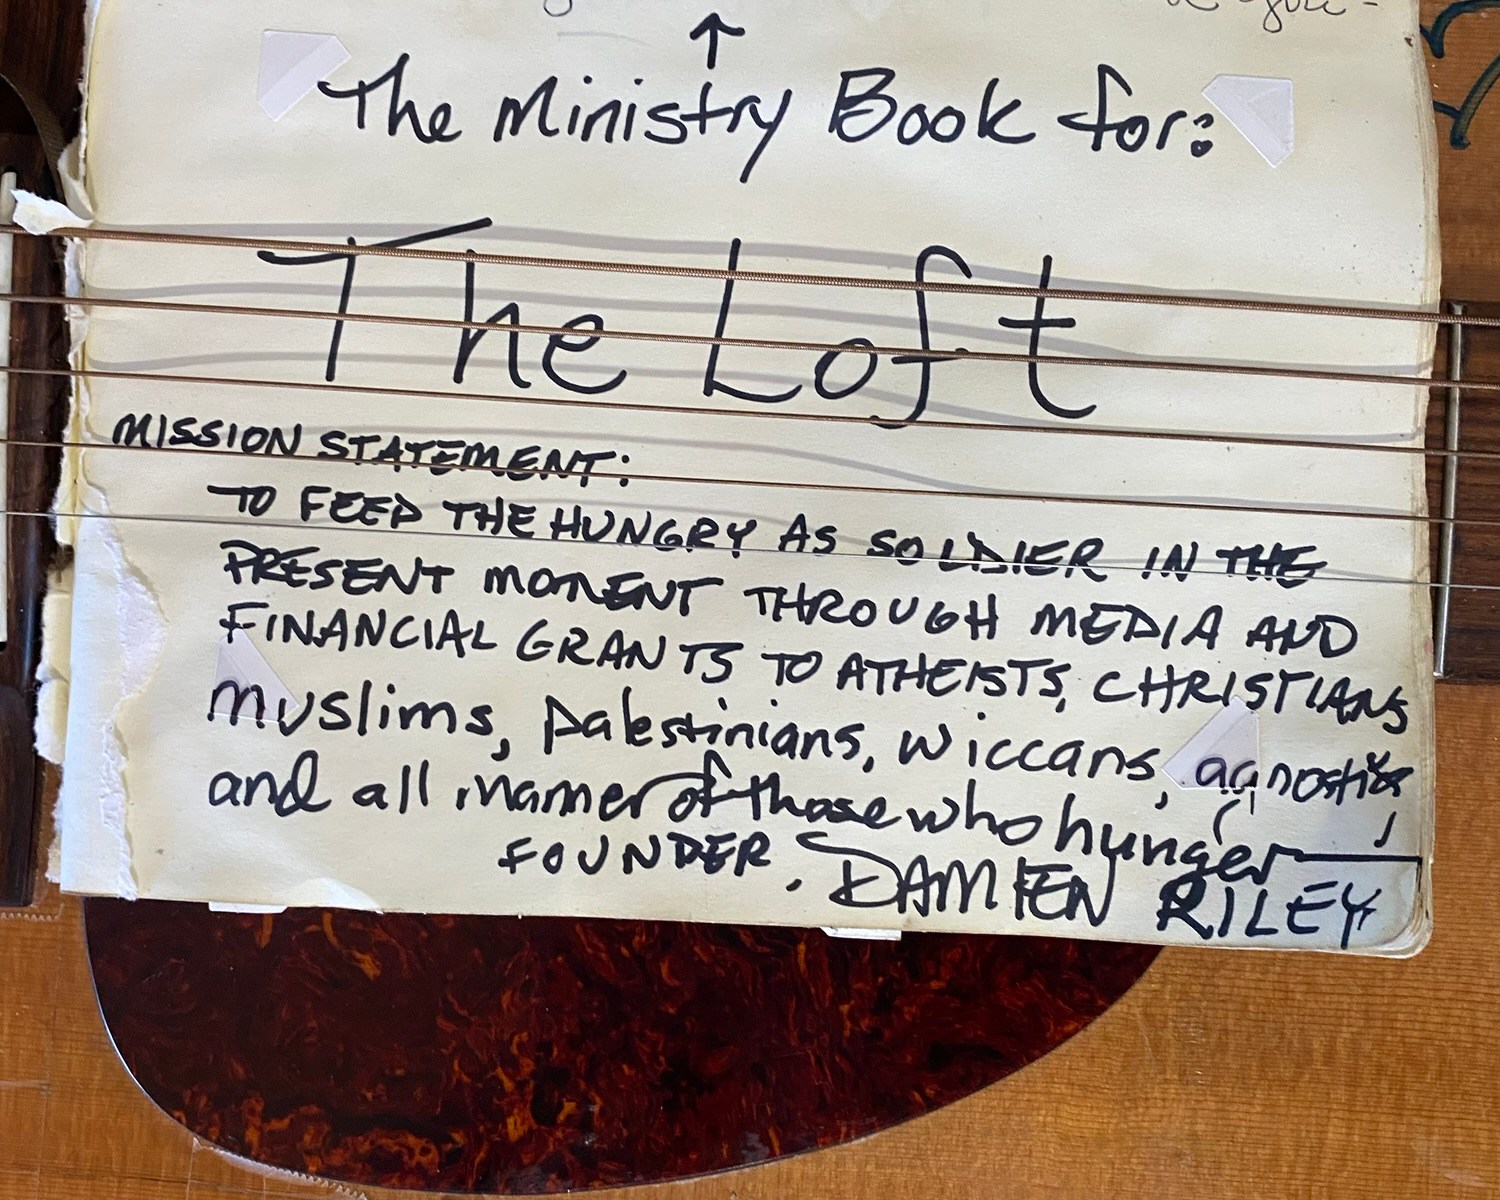 ↑
The Ministry Book for:
The Loft
MISSION STATEMENT:
TO FEED THE HUNGRY AS SOLDIER IN THE
PRESENT MOMENT THROUGH MEDIA AND
FINANCIAL GRANTS TO ATHEISTS, CHRISTIANS
Muslims, Palestinians, Wiccans, agnostics
and all manner of those who hunger
FOUNDER, DAMIEN RILEY